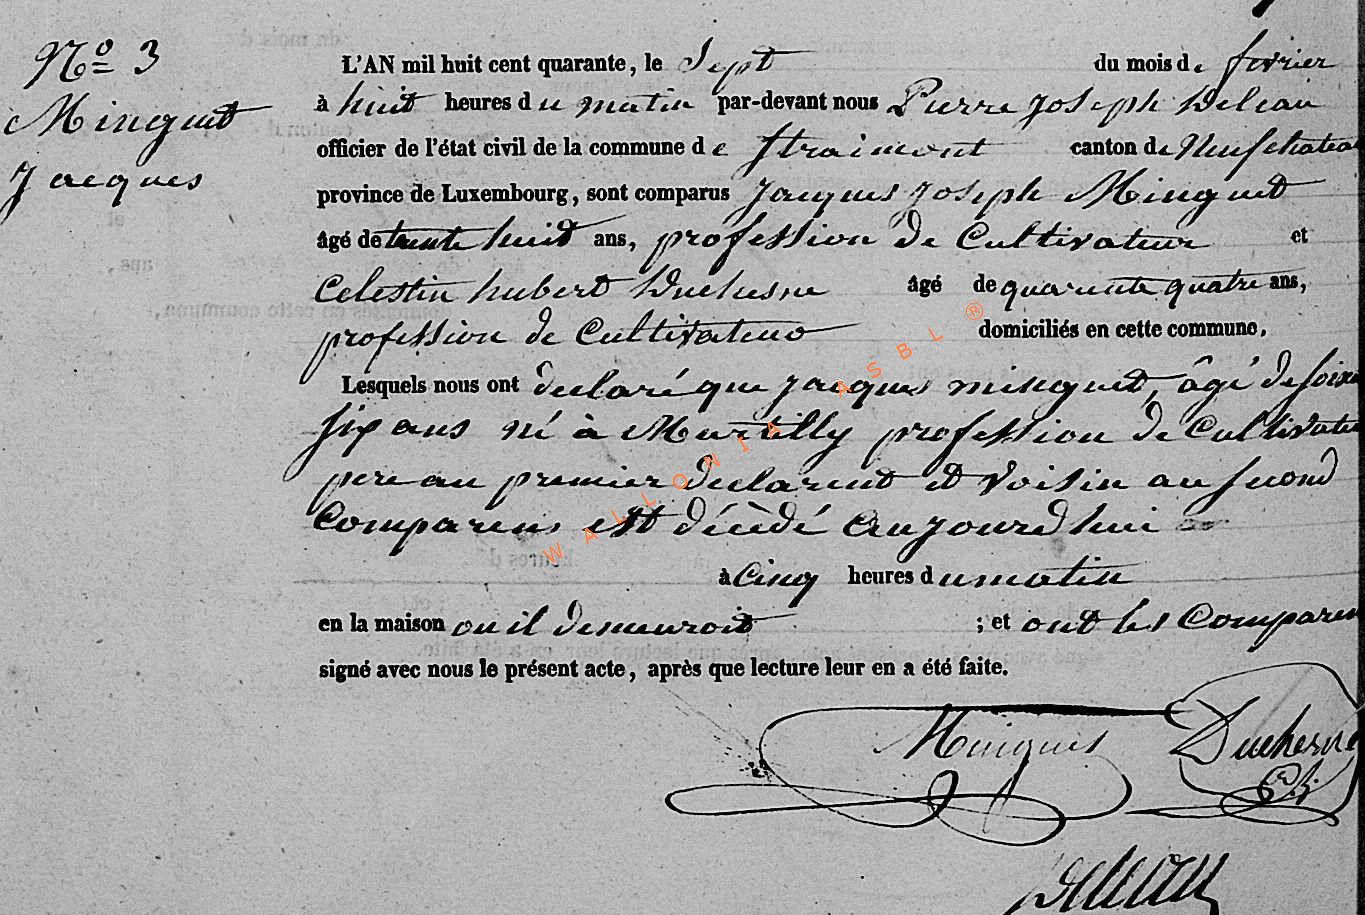 N° 3
Minguet
Jacques
L'AN mil huit cent quarante, le Sept du mois de fevrier
à huit heures du matin par-devant nous Pierre Joseph Deleau
officier de l'état civil de la commune de Straimont canton de Neufchateau
province de Luxembourg, sont comparus Jacques Joseph Minguet
âgé de trente huit ans, profession de Cultivateur et
Celestin hubert Duchesne âgé de quarente quatre ans,
profession de Cultivateur domiciliés en cette commune.
Lesquels nous ont declaré que Jacques minguet, âgé de soixan
six ans né à profession de Cultivateur
pere au premier declarent et Voisin au second
Comparens est décèdé aujourdhui
à cinq heures du matin
en la maison ou il demeuroit ; et ont les Comparens
signé avec nous le présent acte, après que lecture leur en a été faite.
Minguet Duchesne
C h
Deleau
WALLONIA ASBL ®